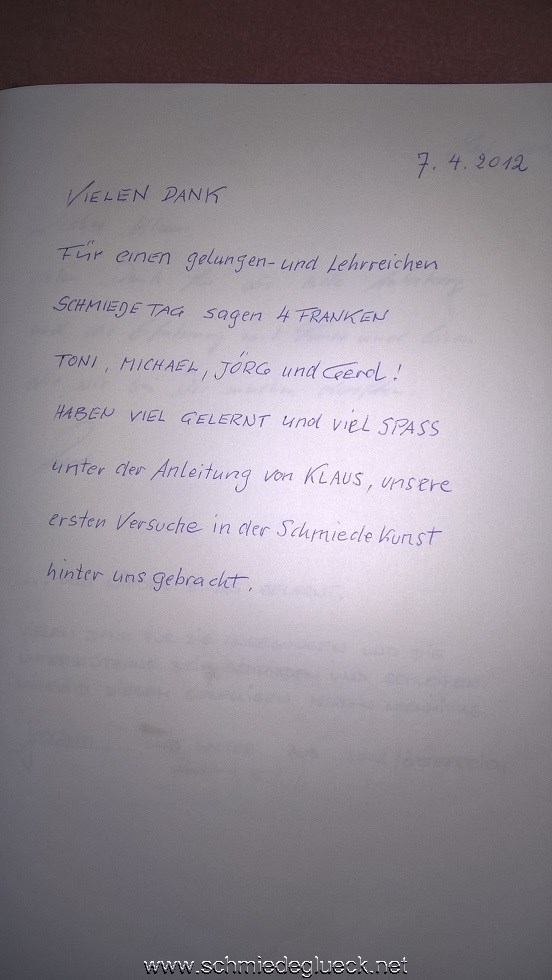 7. 4. 2012
VIELEN DANK
Für einen gelungen- und Lehrreichen
SCHMIEDETAG sagen 4 FRANKEN
TONI, MICHAEL, JÖRG und Gerd!
HABEN VIEL GELERNT und viel SPASS
unter der Anleitung von KLAUS, unsere
ersten Versuche in der Schmiedekunst
hinter uns gebracht.
www.schmiedeglueck.net